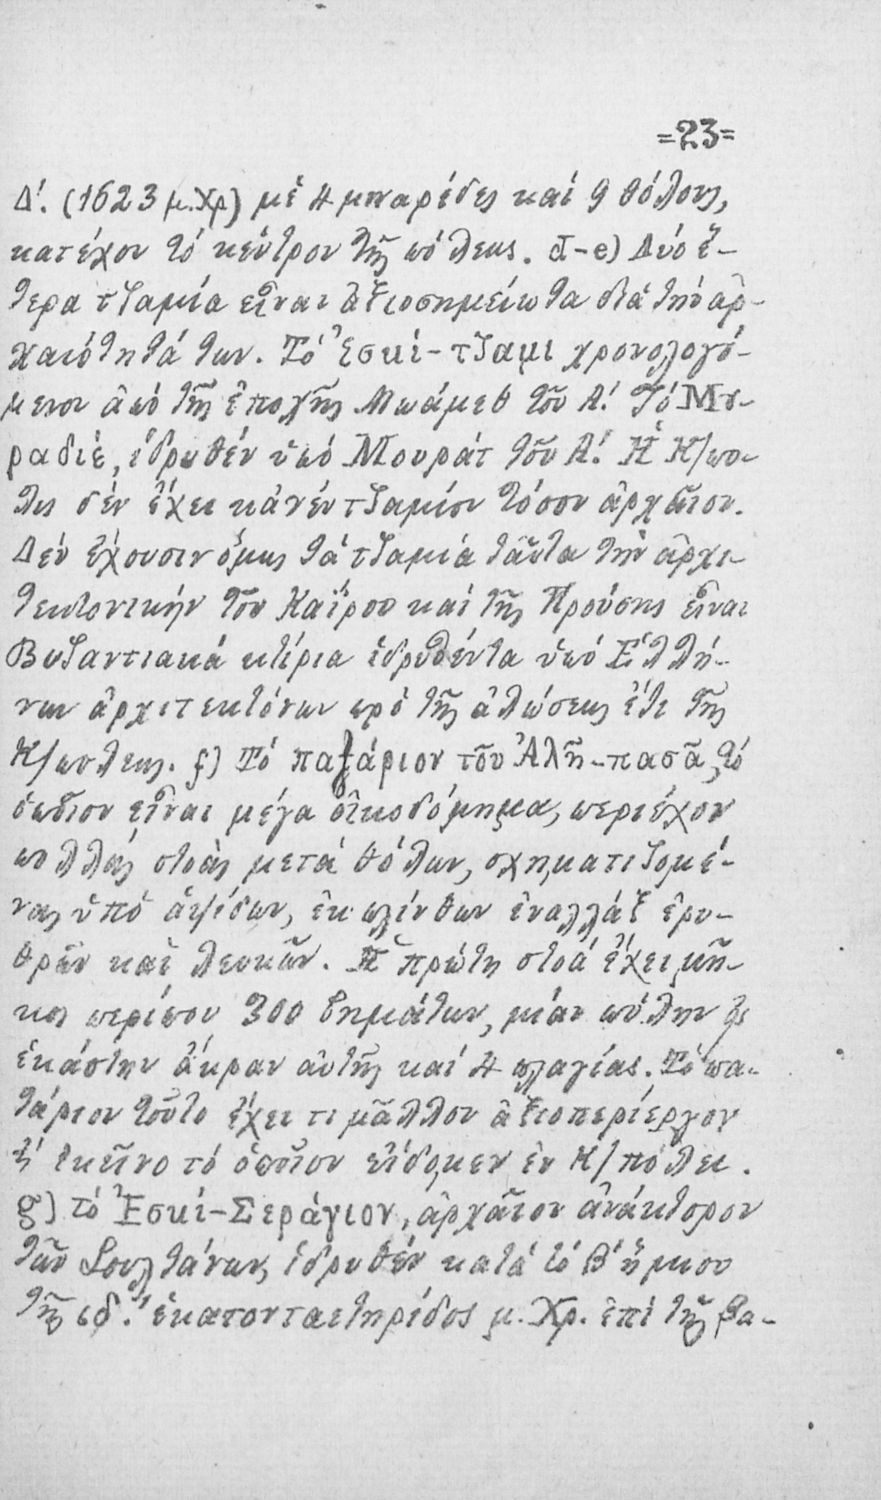 =23=
Δ΄. (1623 μ.Χρ) μέ 4 μιναρέδες καί 9 θόλους,
κατέχον τό κέντρον τῆς πόλεως. d-e) Δύο ἕ-
τερα τζαμία εἶναι ἀξιοσημείωτα διά τήν ἀρ-
χαιότητά των. Τό Ἐσκί-τζαμι χρονολογό-
μενον ἀπό τῆς ἐποχῆς Μωάμεθ τοῦ Α΄. Τό Μου-
ραδιέ, ἱδρυθέν ὑπό Μουράτ τοῦ Α΄. Ἡ Κ/πο-
λις δέν ἔχει κἀνέν τζαμίον τόσον ἀρχαῖον.
Δέν ἔχουσιν ὅμως τά τζαμιά ταῦτα τήν ἀρχι-
τεκτονικήν τοῦ Καΐρου καί τῆς Προύσης εἶναι
Βυζαντιακά κτίρια ἱδρυθέντα ὑπό Ἑλλή-
νων ἀρχιτεκτόνων πρό τῆς ἁλώσεως ἔτι τῆς
Κ/πόλεως. f) Τό παζάριον τοῦ Ἀλῆ-πασᾶ, τό
ὁποῖον εἶναι μέγα οἰκοδόμημα, περιέχον
πολλάς στοάς μετά θόλων, σχηματιζομέ-
νας ὑπό ἁψίδων, ἐκ πλίνθων ἐναλλάξ ἐρυ-
θρῶν καί λευκῶν. Ἡ πρώτη στοά ἔχει μῆ-
κος περίπου 300 βημάτων, μίαν πύλην εἰς
ἑκάστην ἄκραν αὐτῆς καί 4 πλαγίας. Τό πα-
ζάριον τοῦτο ἔχει τι μᾶλλον ἀξιοπερίεργον
ἤ ἐκεῖνο τό ὁποῖον εἴδομεν ἐν Κ/πόλει.
g) τό Ἐσκί-Σεράγιον, ἀρχαῖον ἀνάκτορον
τῶν Σουλτάνων, ἱδρυθέν κατά τό Β΄ ἥμισυ
τῆς ιδ΄. ἑκατονταετηρίδος μ. Χρ. ἐπί τῆς βα-